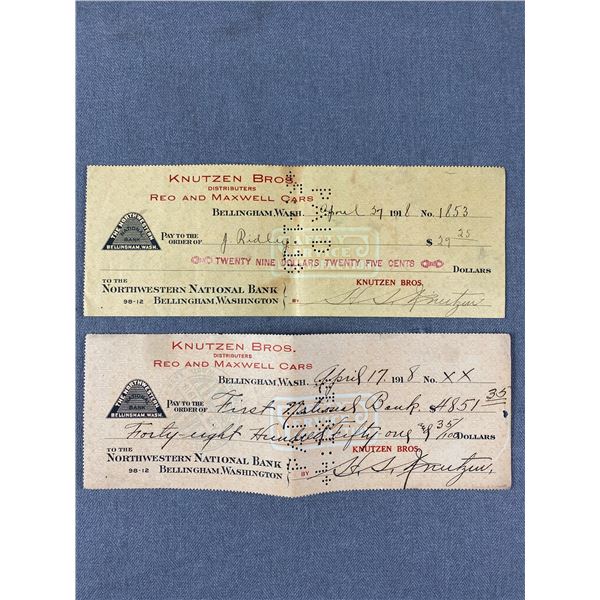 KNUTZEN BROS.
DISTRIBUTERS
REO AND MAXWELL CARS
BELLINGHAM, WASH. April 27 1918 No. 1853
THE NORTHWESTERN
NATIONAL
BANK
BELLINGHAM, WASH.
PAY TO THE
ORDER OF J Ridley $ 29 25
TWENTY NINE DOLLARS TWENTY FIVE CENTS DOLLARS
TO THE
NORTHWESTERN NATIONAL BANK KNUTZEN BROS.
98-12 BELLINGHAM, WASHINGTON BY H. S. Knutzen
KNUTZEN BROS.
DISTRIBUTERS
REO AND MAXWELL CARS
BELLINGHAM, WASH. April 17. 1918 No. XX
THE NORTHWESTERN
NATIONAL
BANK
BELLINGHAM, WASH.
PAY TO THE
ORDER OF First National Bank $ 4851 35
Forty-eight Hundred fifty one & 35/100 DOLLARS
TO THE
NORTHWESTERN NATIONAL BANK KNUTZEN BROS.
98-12 BELLINGHAM, WASHINGTON BY H. S. Knutzen